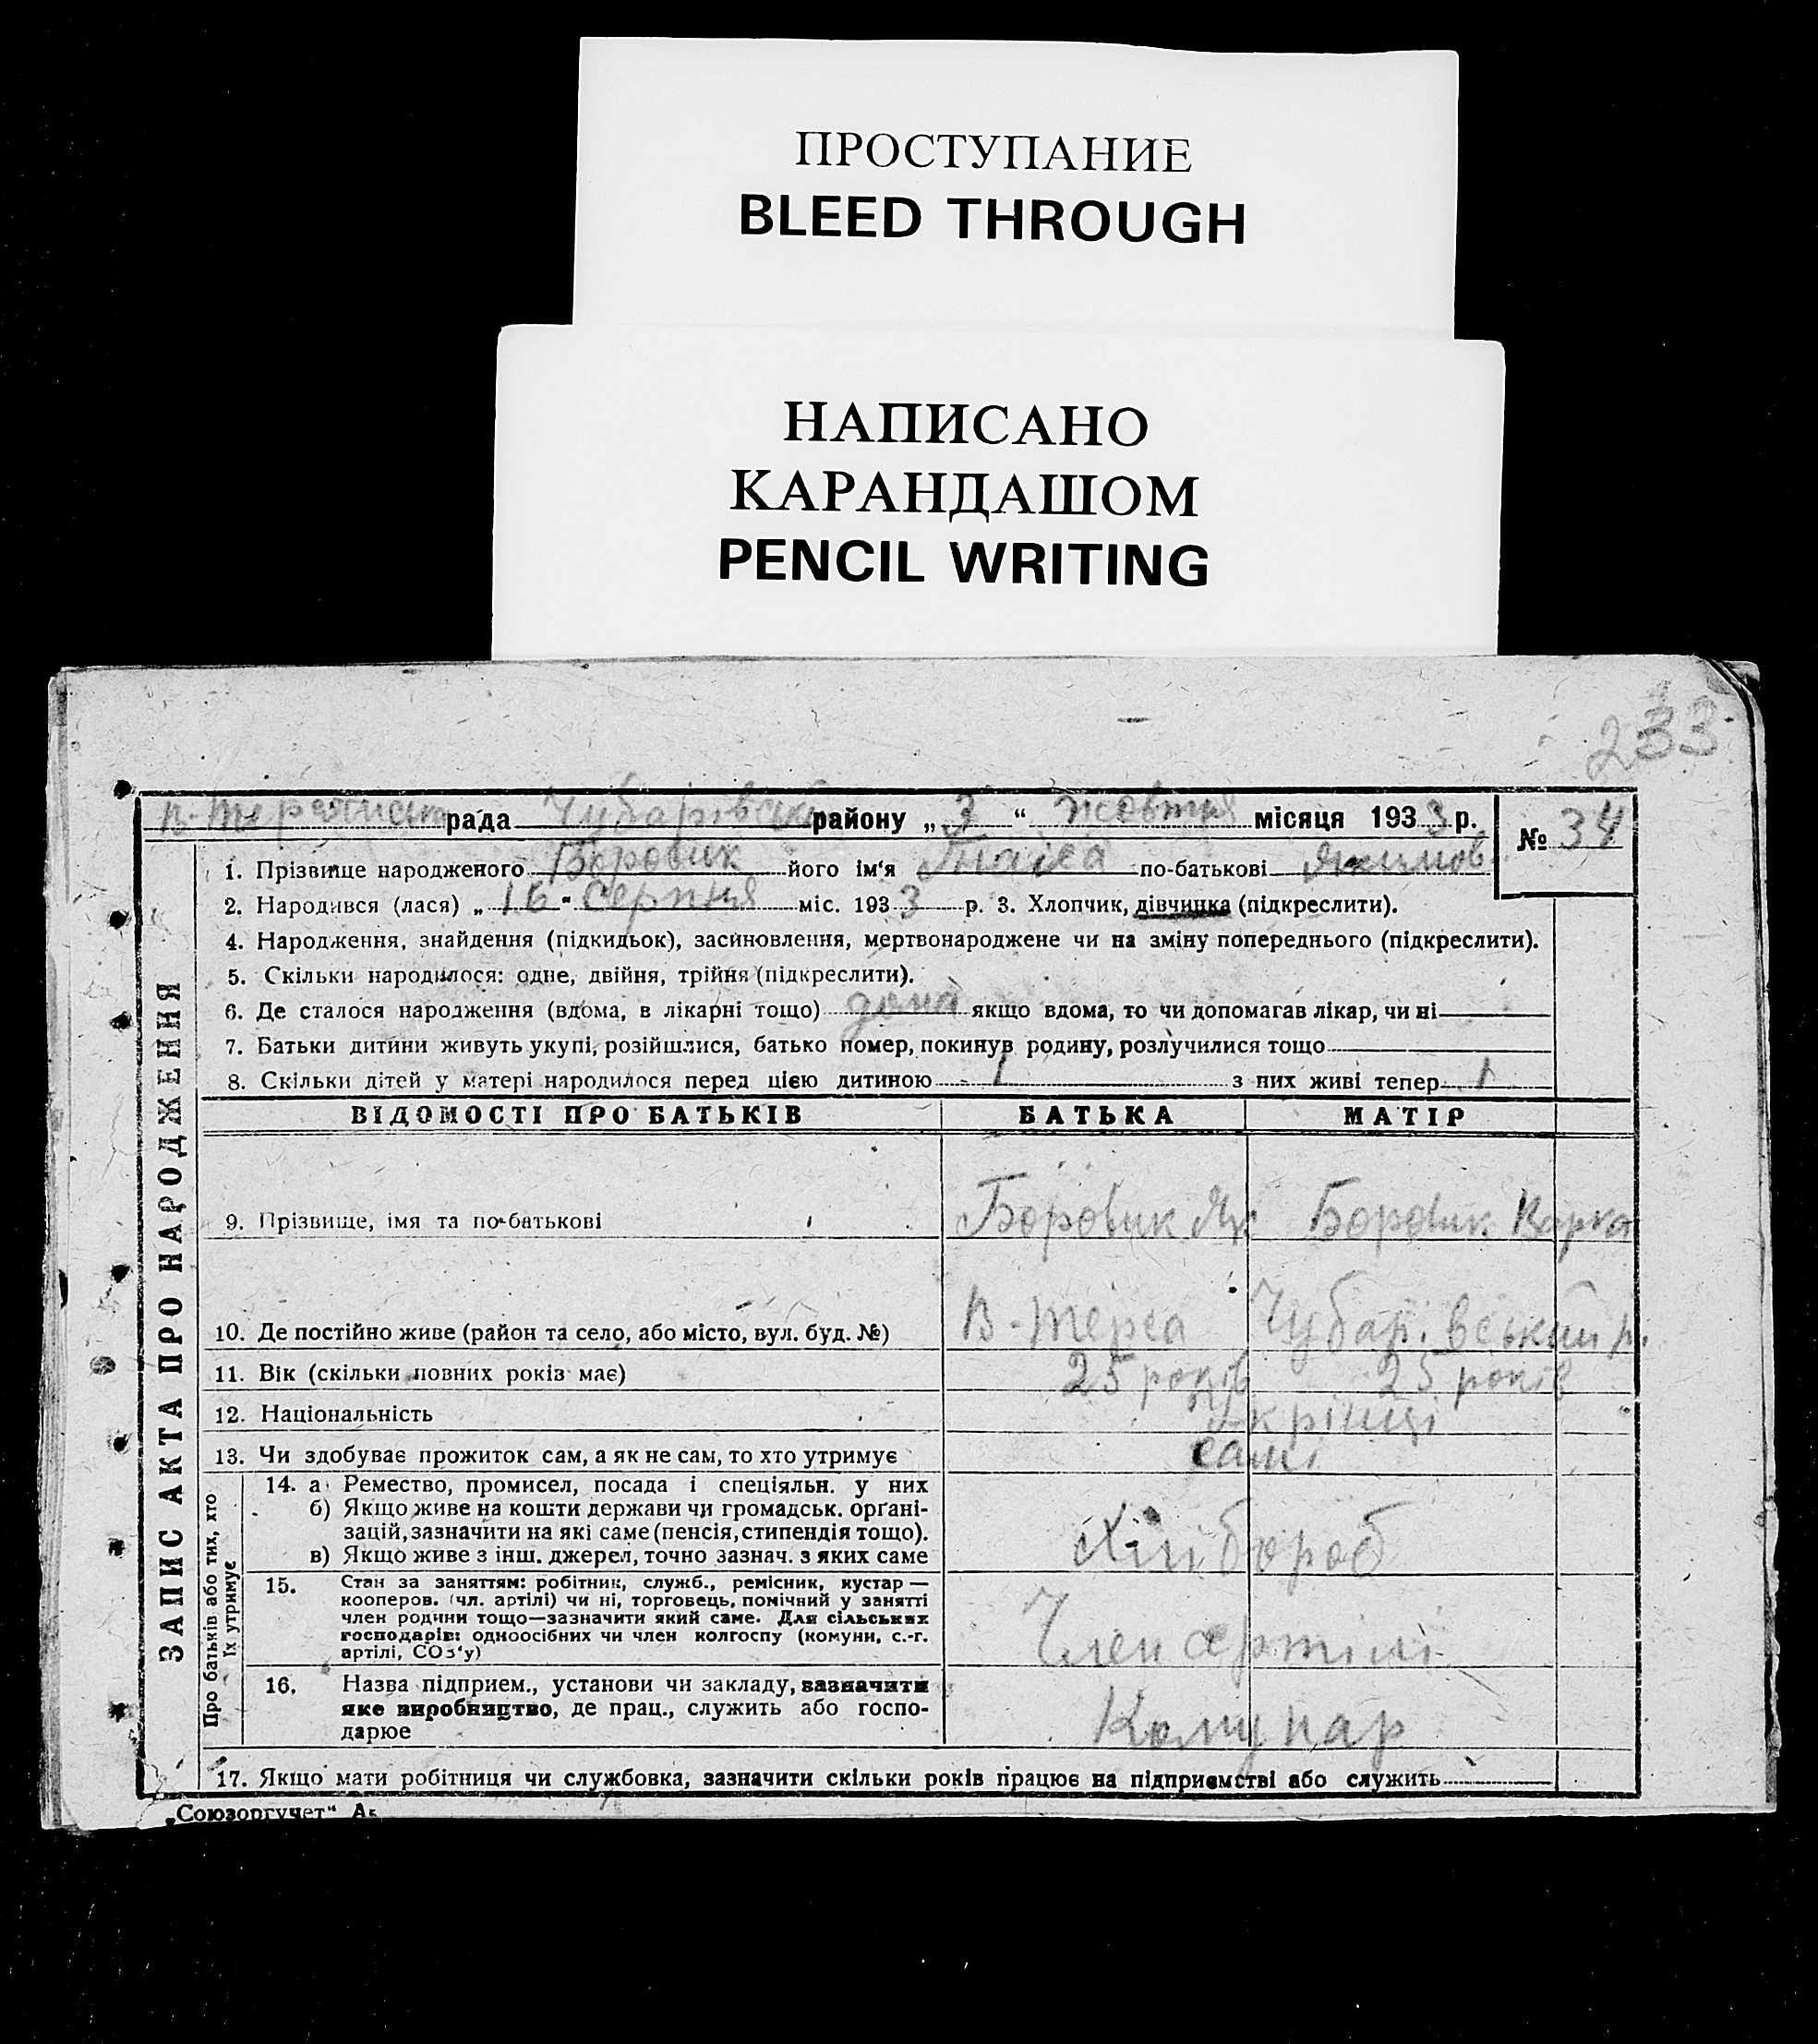 ПРОСТУПАНИЕ
BLEED THROUGH
НАПИСАНО
КАРАНДАШОМ
PENCIL WRITING
233
рада Чубарівськ району „ 3 “ жовтня місяця 193 3 р.
№ 34
ЗАПИС АКТА ПРО НАРОДЖЕННЯ
1. Прізвище народженого Боровик його ім'я по-батькові Якимов.
2. Народився (лася) „ 16 " серпня міс. 193 3 р. 3. Хлопчик, дівчинка (підкреслити).
4. Народження, знайдення (підкидьок), засиновлення, мертвонароджене чи на зміну попереднього (підкреслити).
5. Скільки народилося: одне, двійня, трійня (підкреслити).
6. Де сталося народження (вдома, в лікарні тощо) дома якщо вдома, то чи допомагав лікар, чи ні
7. Батьки дитини живуть укупі, розійшлися, батько помер, покинув родину, розлучилися тощо
8. Скільки дітей у матері народилося перед цією дитиною 1 з них живі тепер 1
ВІДОМОСТІ ПРО БАТЬКІВ БАТЬКА МАТІР
9. Прізвище, імя та по-батькові Боровик Як Боровик Варка
10. Де постійно живе (район та село, або місто, вул. буд. №) В-Терса Чубарівський р.
11. Вік (скільки повних років має) 25 років 25 років
12. Національність Укрінці
13. Чи здобуває прожиток сам, а як не сам, то хто утримує самі
Про батьків або тих, хто
їх утримує
14. а Ремество, промисел, посада і спеціяльн. у них
б) Якщо живе на кошти держави чи громадськ. органі-
зацій, зазначити на які саме (пенсія, стипендія тощо).
в) Якщо живе з інш. джерел, точно зазнач. з яких саме
Хлібороб
15. Стан за заняттям: робітник, служб., ремісник, кустар —
кооперов. (чл. артілі) чи ні, торговець, помічний у занятті
член родини тощо—зазначити який саме. Для сільських
господарів: одноосібних чи член колгоспу (комуни, с.-г.
артілі, СОЗ'у)
Член артілі
16. Назва підприєм., установи чи закладу, зазначити
яке виробництво, де прац., служить або госпо-
дарює
Комунар
17. Якщо мати робітниця чи службовка, зазначити скільки років працює на підприємстві або служить
„Союзоргучет"